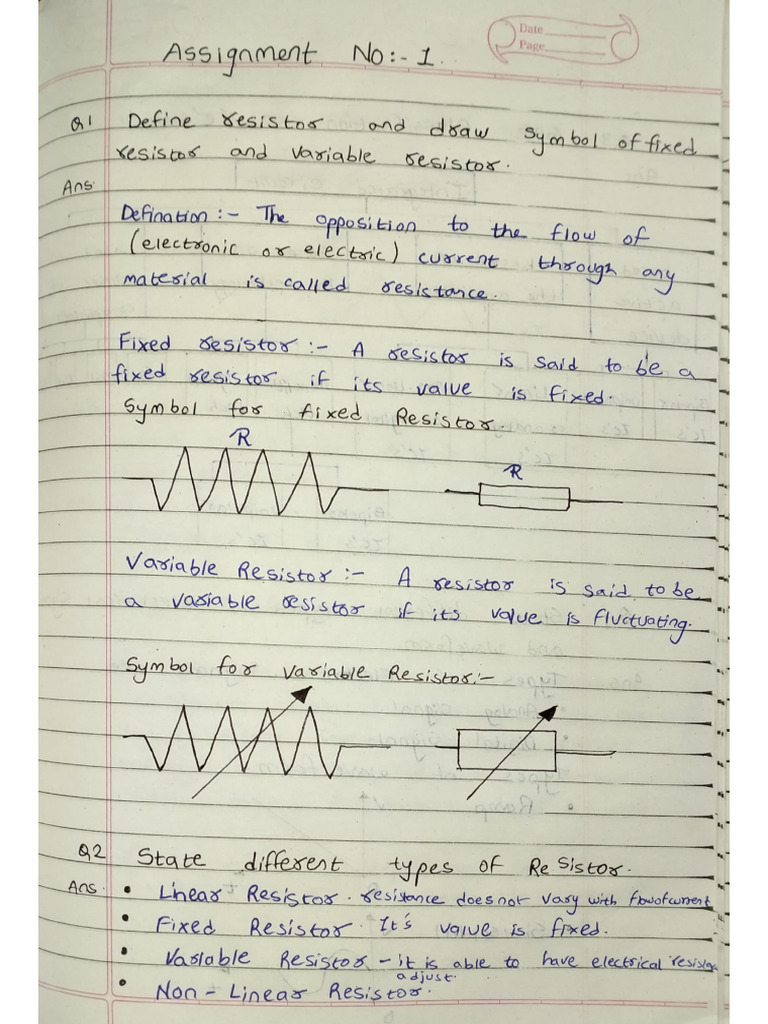 Date
Page
Assignment No:- 1.
Q1 Define resistor and draw symbol of fixed
resistor and variable resistor.
Ans.
Defination :- The opposition to the flow of
(electronic or electric) current through any
material is called resistance.
Fixed resistor :- A resistor is said to be a
fixed resistor if its value is fixed.
Symbol for fixed Resistor.
R
R
Variable Resistor :- A resistor is said to be
a variable resistor if its value is fluctuating.
Symbol for variable Resistor:-
Q2 State different types of Resistor.
Ans. • Linear Resistor. resistance does not vary with flow of current
• Fixed Resistor. It's value is fixed.
• Variable Resistor - it is able to have electrical resistan
adjust.
• Non-Linear Resistor.